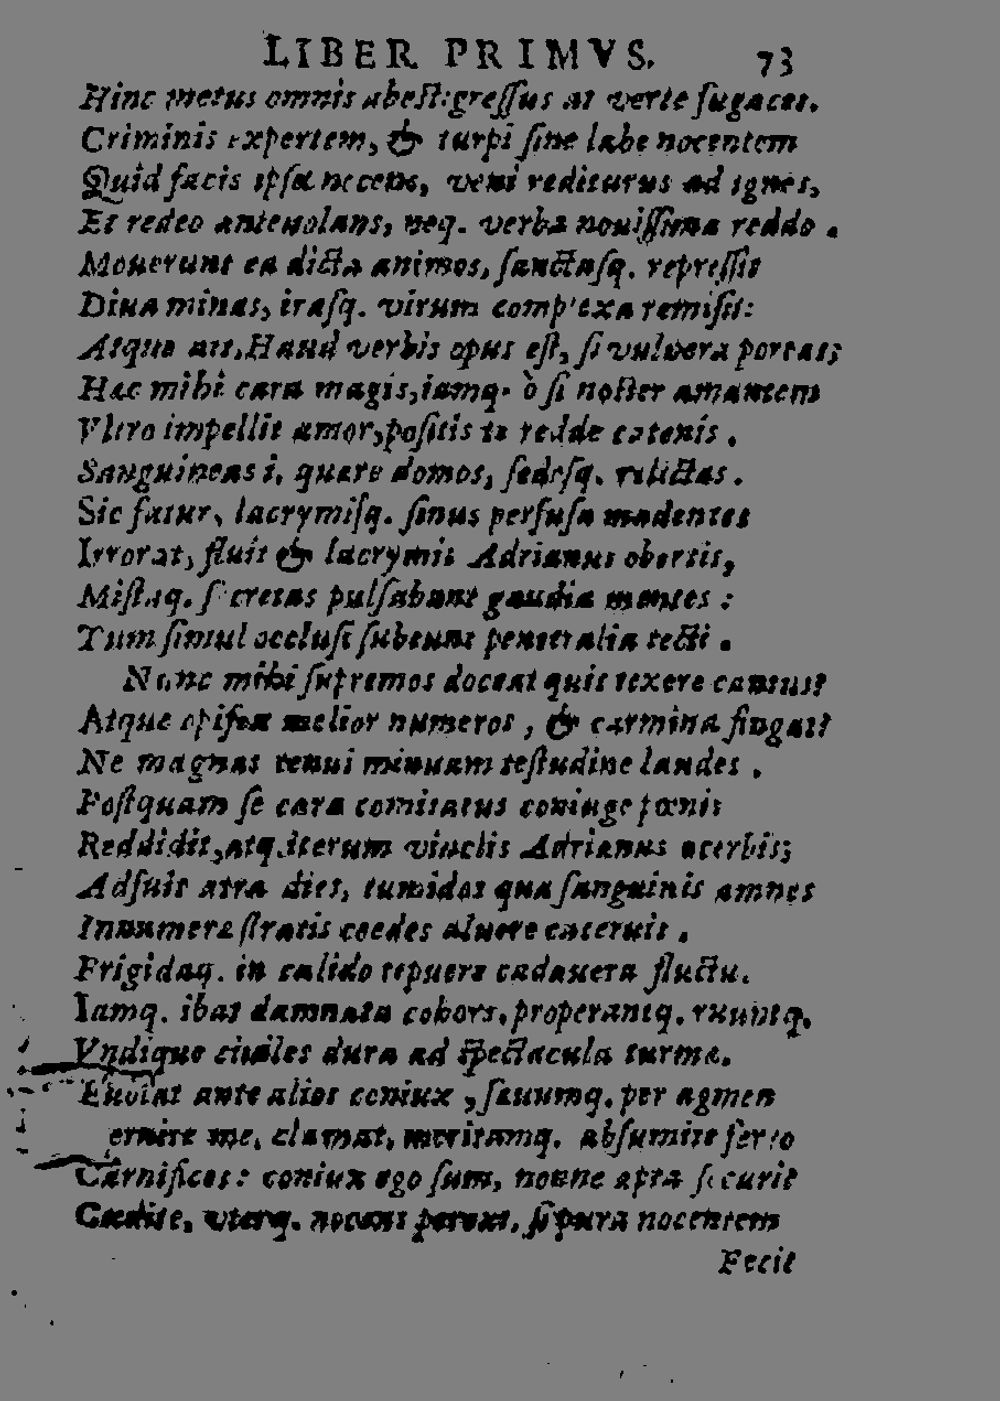 LIBER PRIMVS. 73
Hinc metus omnis abest: gressus at verte fugaces.
Criminis expertem, & turpi sine labe nocentem
Quid facis ipsa necem, veni rediturus ad ignes,
Et redeo anteuolans, neq. verba nouissima reddo.
Mouerunt ea dicta animos, sanctasq. repressit
Diua minas, irasq. virum comp'exa remisit:
Atque ait, Haud verbis opus est, si vulnera portas;
Hac mihi cara magis, iamq. ò si noster amantem
Vltro impellit amor, positis te redde catenis.
Sanguineas i, quære domos, sedesq. relictas.
Sic fatur, lacrymisq. sinus perfusa madentes
Irrorat, fluit & lacrymis Adrianus obortis,
Mistaq. secretas pulsabant gaudia mentes:
Tum simul occlusi subeunt penetralia tecti.
Nunc mihi supremos doceat quis texere cantus?
Atque opifex melior numeros, & carmina fingat?
Ne magnas tenui minuam testudine laudes.
Postquam se cara comitatus coniuge pœnis
Reddidit, atq. iterum vinclis Adrianus acerbis;
Adfuit atra dies, tumidos qua sanguinis amnes
Innumeræ stratis cœdes aluere cateruis.
Frigidaq. in calido tepuere cadauera fluctu.
Iamq. ibat damnata cohors, properantq. ruuntq.
Vndique ciuiles dura ad spectacula turmæ.
Euolat ante alios coniux, sæuumq. per agmen
ernite me, clamat, meritamq. absumite ferro
Carnifices: coniux ego sum, nonne apta securis
Cædite, vterq. nocens pereat, si pura nocentem
Fecit